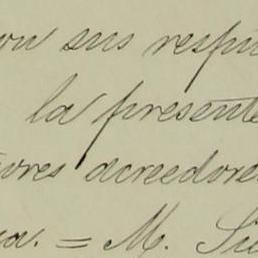 sus respu
la presente
ores acreedores
a. = M.